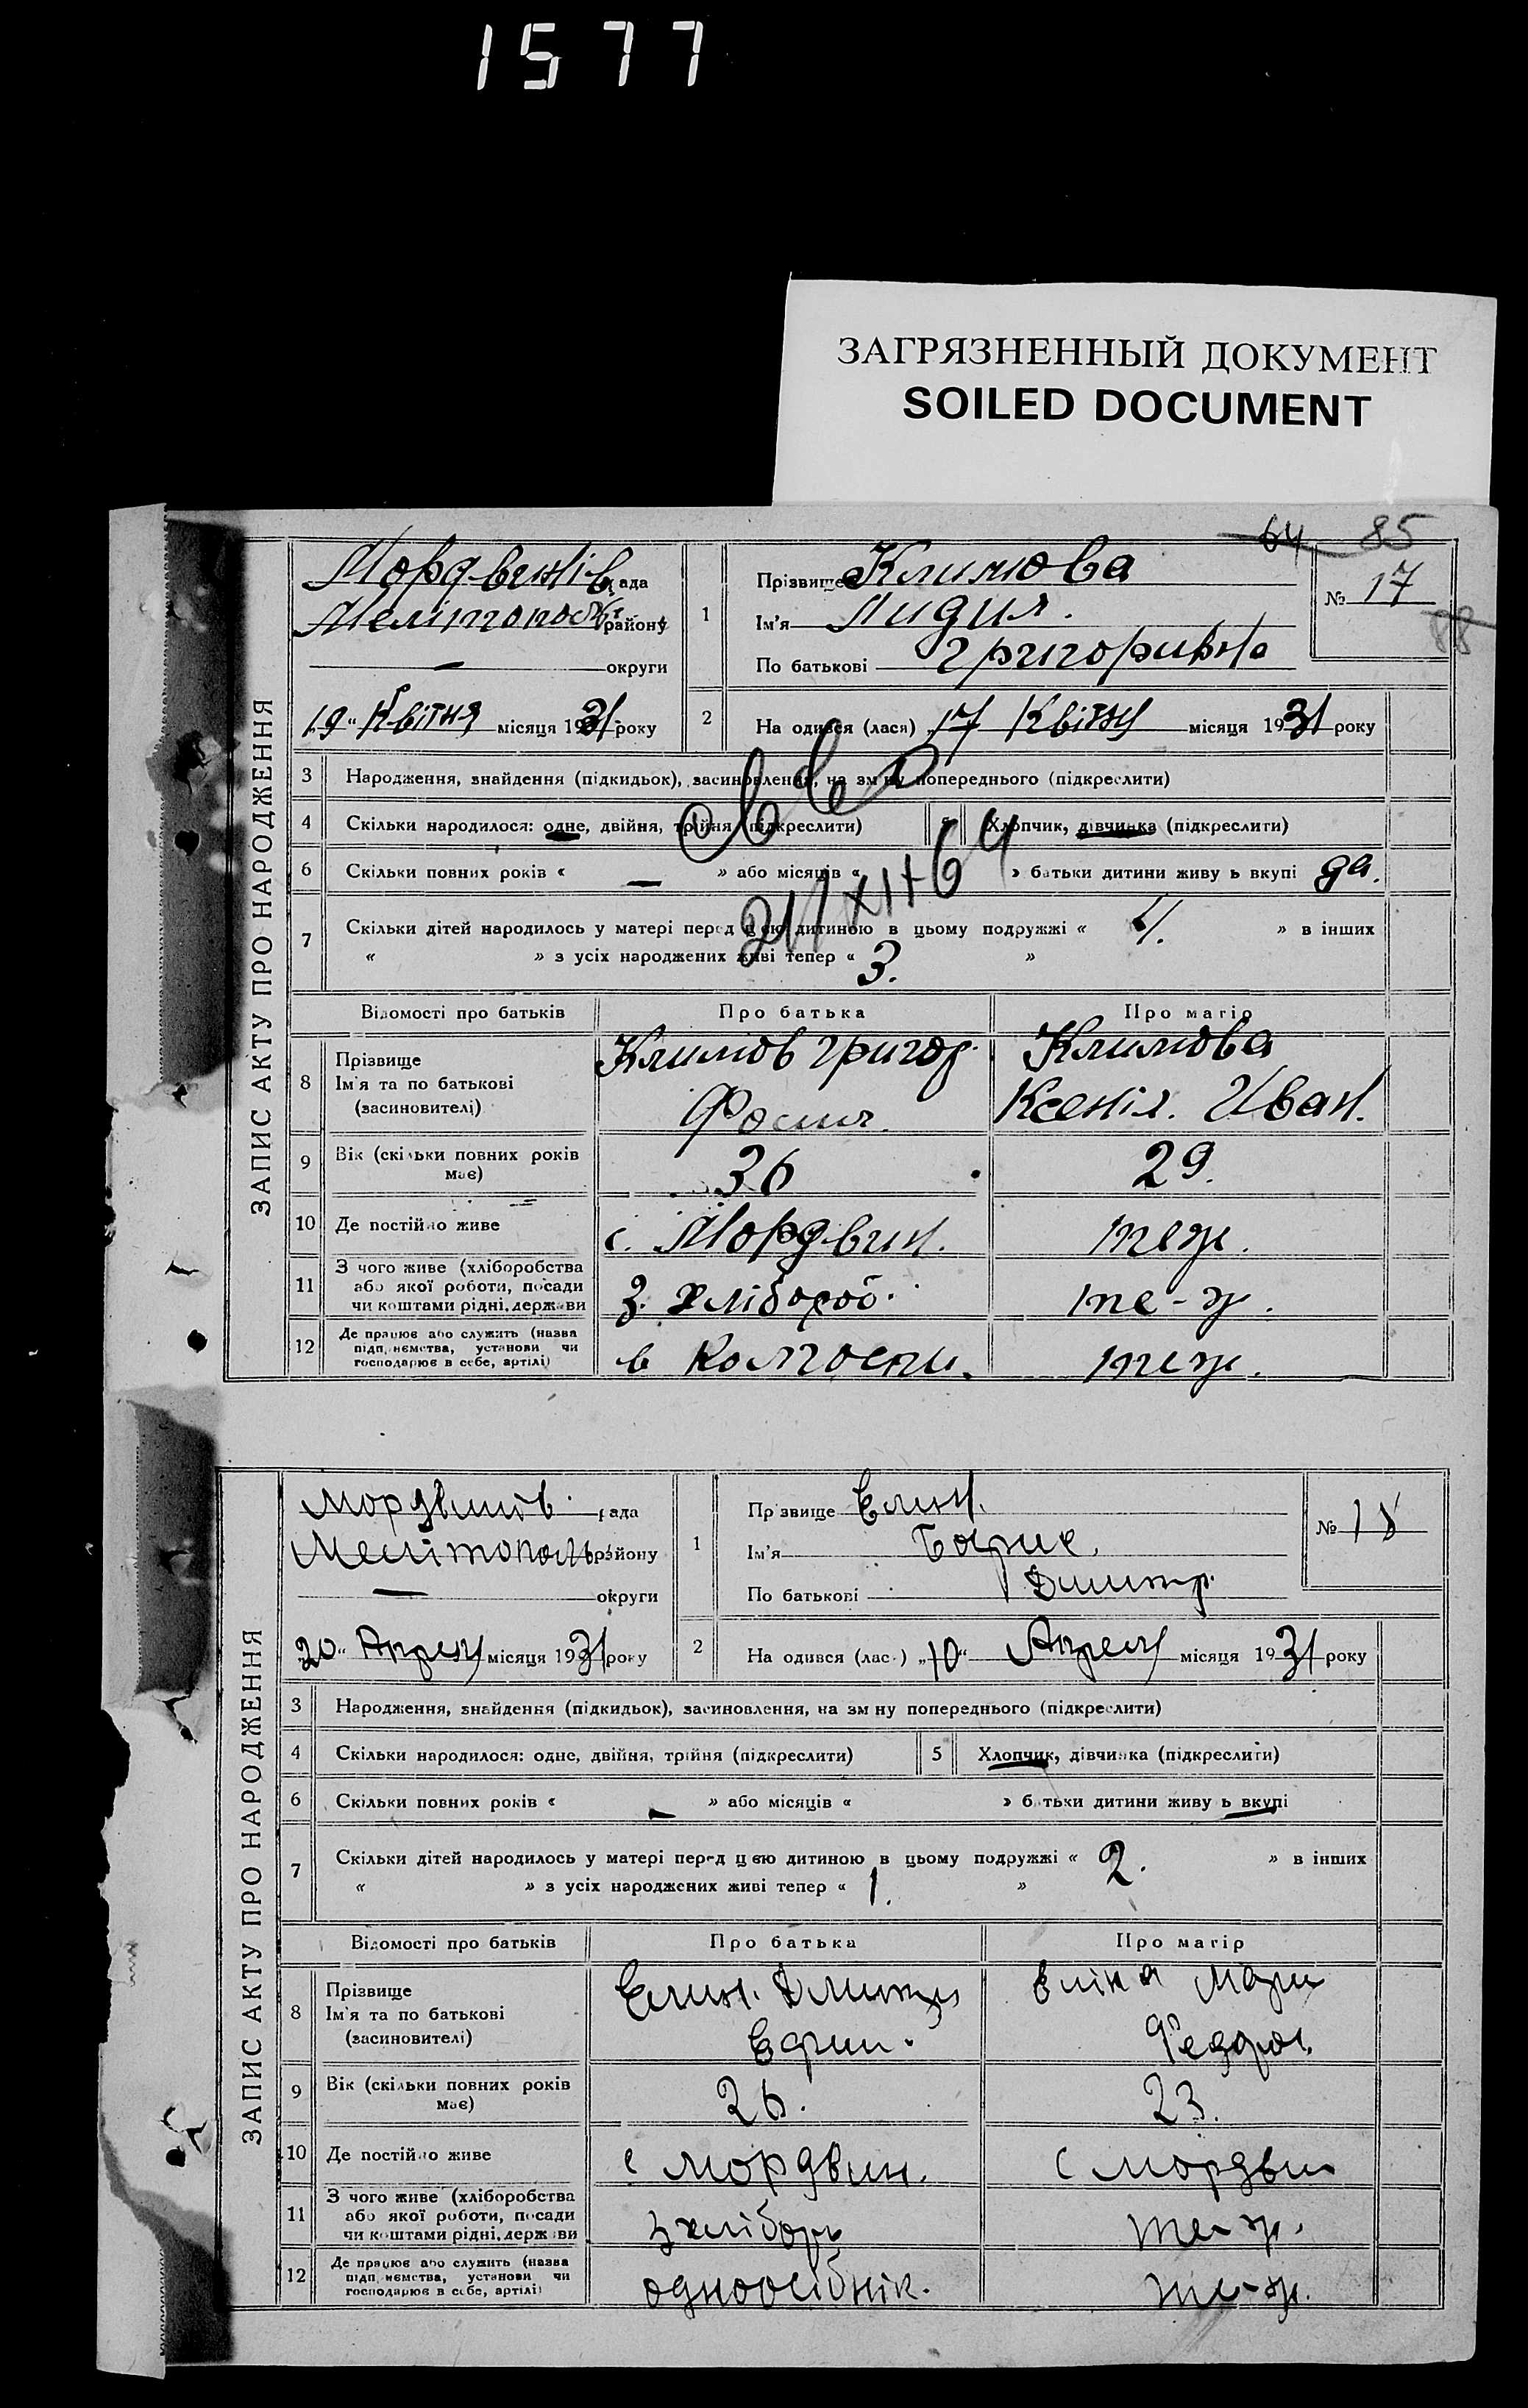 1577
ЗАГРЯЗНЕННЫЙ ДОКУМЕНТ
SOILED DOCUMENT
64 85
88
ЗАПИС АКТУ ПРО НАРОДЖЕННЯ
Мордвинів рада
Мелітопольс району
— округи
19 " Квітня місяця 1931 року
1 Прізвище Климова
Ім'я Лидия.
По батькові Григоривна
№ 17
2 На одився (лася) 17 Квітня місяця 1931 року
3 Народження, знайдення (підкидьок), засиновлення, на зм ну попереднього (підкреслити)
4 Скільки народилося: одне, двійня, трійня (підкреслити) 5 Хлопчик, дівчинка (підкреслити)
6 Скільки повних років « — » або місяців « » батьки дитини живу ь вкупі да.
7 Скільки дітей народилось у матері перед цією дитиною в цьому подружжі « 4. » в інших
« » з усіх народжених живі тепер « 3. »
21/XI 64
Відомості про батьків Про батька Про матір
8 Прізвище
Ім'я та по батькові
(засиновителі)
Климов Григор.
Фомич.
Климова
Ксенія. Иван.
9 Вік (скільки повних років має) 36 29.
10 Де постійно живе с. Мордвин. теж.
11 З чого живе (хліборобства
або якої роботи, посади
чи коштами рідні, держави
З. хлібороб. те-ж.
12 Де працює або служить (назва
підп, немства, установи чи
господарює в себе, артілі)
в Колгоспи. теж.
ЗАПИС АКТУ ПРО НАРОДЖЕННЯ
Мордвинів рада
Мелітополь району
— округи
20 " Апреля місяця 1931 року
1 Пр звище Елин.
Ім'я Борис.
По батькові Дмитр.
№ 18
2 На одився (лас ) „10" Апреля місяця 1931 року
3 Народження, знайдення (підкидьок), засиновлення, на зм ну попереднього (підкреслити)
4 Скільки народилося: одне, двійня, трійня (підкреслити) 5 Хлопчик, дівчинка (підкреслити)
6 Скільки повних років « — » або місяців « » б тьки дитини живу ь вкупі
7 Скільки дітей народилось у матері перед цею дитиною в цьому подружжі « 2. » в інших
« » з усіх народжених живі тепер « 1. »
Відомості про батьків Про батька Про матір
8 Прізвище
Ім'я та по батькові
(засиновителі)
Елин. Дмитр
Ефим.
Еліна Мари
Федор.
9 Вік (скільки повних років має) 26. 23.
10 Де постійно живе с Мордвин. с Мордвин
11 З чого живе (хліборобства
або якої роботи, посади
чи коштами рідні, держ ви
З хлібор те-ж.
12 Де працює або служить (назва
підп, немства, установи чи
господарює в себе, артілі)
одноосібнік. те-ж.